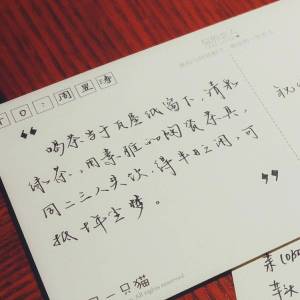 TO：周里
喝茶当于瓦屋纸窗下，清泉
绿茶，用素雅的陶瓷茶具，
同二三人共饮，得半日之闲，可
抵十年尘梦。
一只猫
All rights reserved
祝